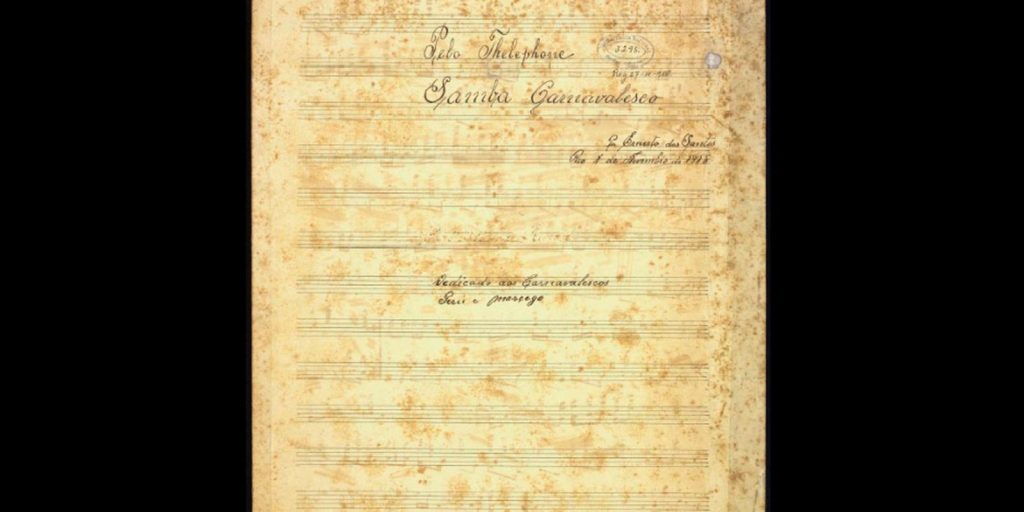 Pelo Thelephone
3.295.
Reg 27-11-916
Samba Carnavalesco
Ernesto dos Santos
Rio 1 de Novembro de 1916
Dedicado aos Carnavalescos
Peru e morcego